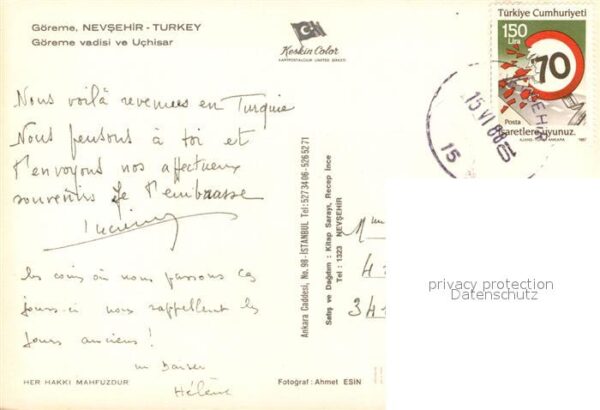 Göreme, NEVŞEHİR - TURKEY
Göreme vadisi ve Uçhisar
Keskin Color
KARTPOSTALCILIK LIMITED ŞIRKETI
Türkiye Cumhuriyeti
150
Lira
70
Posta
işaretlere uyunuz.
AJANS-TÜRK ANKARA 1987
NEVŞEHİR
15 VI 88
15
Nous voilà revenues en Turquie
Nous pensons à toi et
t'envoyons nos affectueux
souvenirs Je t'embrasse
Lucienne
les coins où nous passons ces
jours-ci nous rappellent les
jours anciens!
un baiser
Hélène
HER HAKKI MAHFUZDUR
Fotoğraf: Ahmet ESİN
Ankara Caddesi, No. 98 - İSTANBUL Tel: 527 34 06 - 526 52 71
Satış ve Dağıtım : Kitap Sarayı, Recep İnce
Tel : 1323 NEVŞEHİR
Mme
4
341
privacy protection
Datenschutz